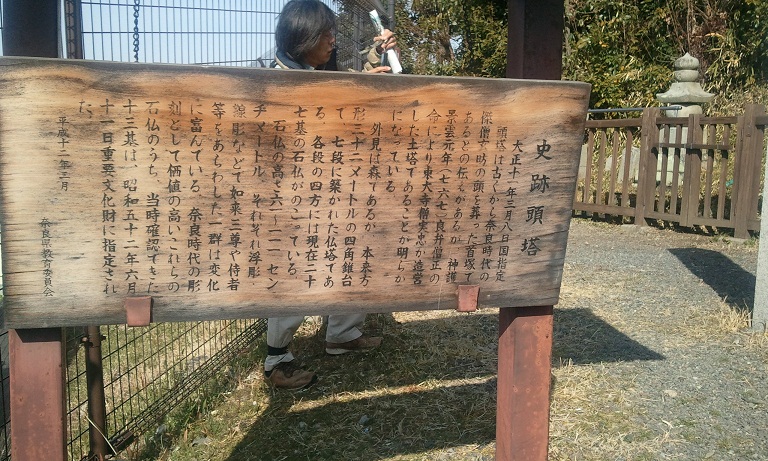 史跡頭塔
大正十一年三月八日国指定
頭塔は古くから奈良時代の
僧玄昉の頭を葬った首塚で
あるとの伝えがあるが、神護
景雲元年(七六七)良弁僧正の
命により東大寺僧実忠が造営
した土塔であることが明らか
になっている。
外見は森であるが、本来方
形三十二メートルの四角錐台
て、七段に築かれた仏塔であ
る。各段の四方には現在二十
七基の石仏がのこっている。
石仏の高さ六〜一一一センチ
メートル、それぞれ浮彫・
線彫などで如来三尊や侍者
等をあらわした一群は変化
に富んでいる。奈良時代の彫
刻として価値の高いこれらの
石仏のうち、当時確認できた
十三基は、昭和五十二年六月
十一日重要文化財に指定され
た。
平成十二年三月
奈良県教育委員会